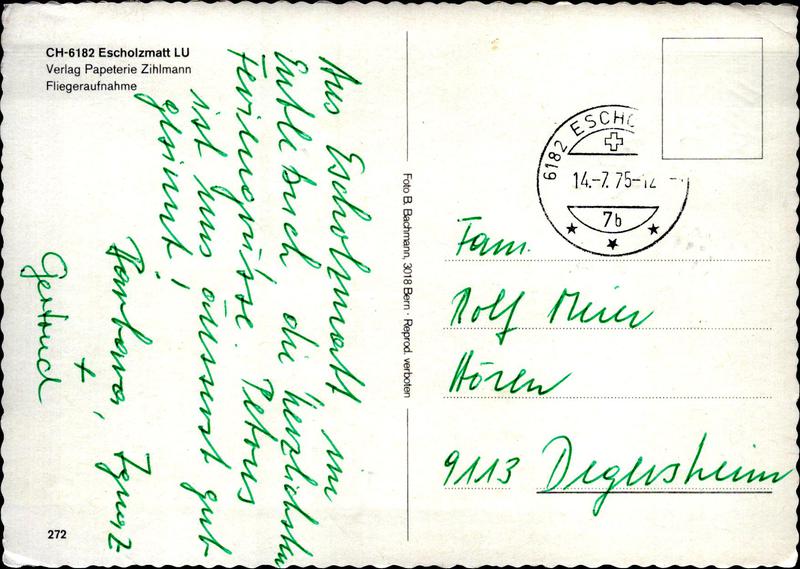 CH-6182 Escholzmatt LU
Verlag Papeterie Zihlmann
Fliegeraufnahme
Aus Escholzmatt im
Entlebuch die herzlichsten
Feriengrüsse. Petrus
ist uns äusserst gut
gesinnt!
Barbara, Ignaz
+
Gertrud
272
Foto B. Bachmann, 3018 Bern · Reprod. verboten
6182 ESCHO
14.-7.75-12
7b
Fam.
Rolf Meier
Hören
9113 Degersheim